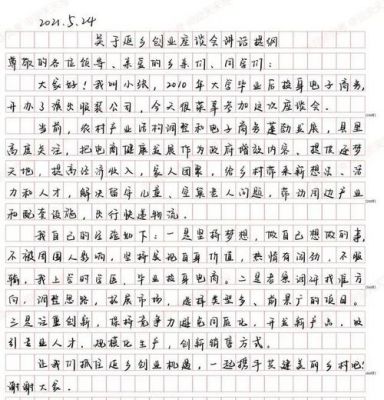 2021.5.24
关于返乡创业座谈会讲话提纲
尊敬的各位领导、亲爱的乡亲们、同学们:
大家好!我叫小张,2010年大学毕业后投身电子商务,
开办了演出服装公司,今天很荣幸参加这次座谈会。
当前,农村产业结构调整和电子商务蓬勃发展,县里
高度关注,把电商健康发展作为政府增效内容、提供逐梦
天地,提高经济收入,家人团聚,给乡村带来新想法、活
力和人才,解决留守儿童、空巢老人问题,带动周边产业
和配套设施,良行快递物流。
我自己的经验如下:一是坚持梦想,做自己想做的事,
不被周围人影响,坚持实现自身价值,热情有闯劲,不服
输,我上学时
毕业投身电商。二是看集调研找准方
向,调整思路,拓展市场,选择类型多、前景广的项目。
三是注重创新,保持竞争力避免同质化,开发新产品,吸
引专业人才,规模化生产,创新销售方式。
让我们抓住返乡创业机遇,一起携手共建美丽乡村吧!
谢谢大家。